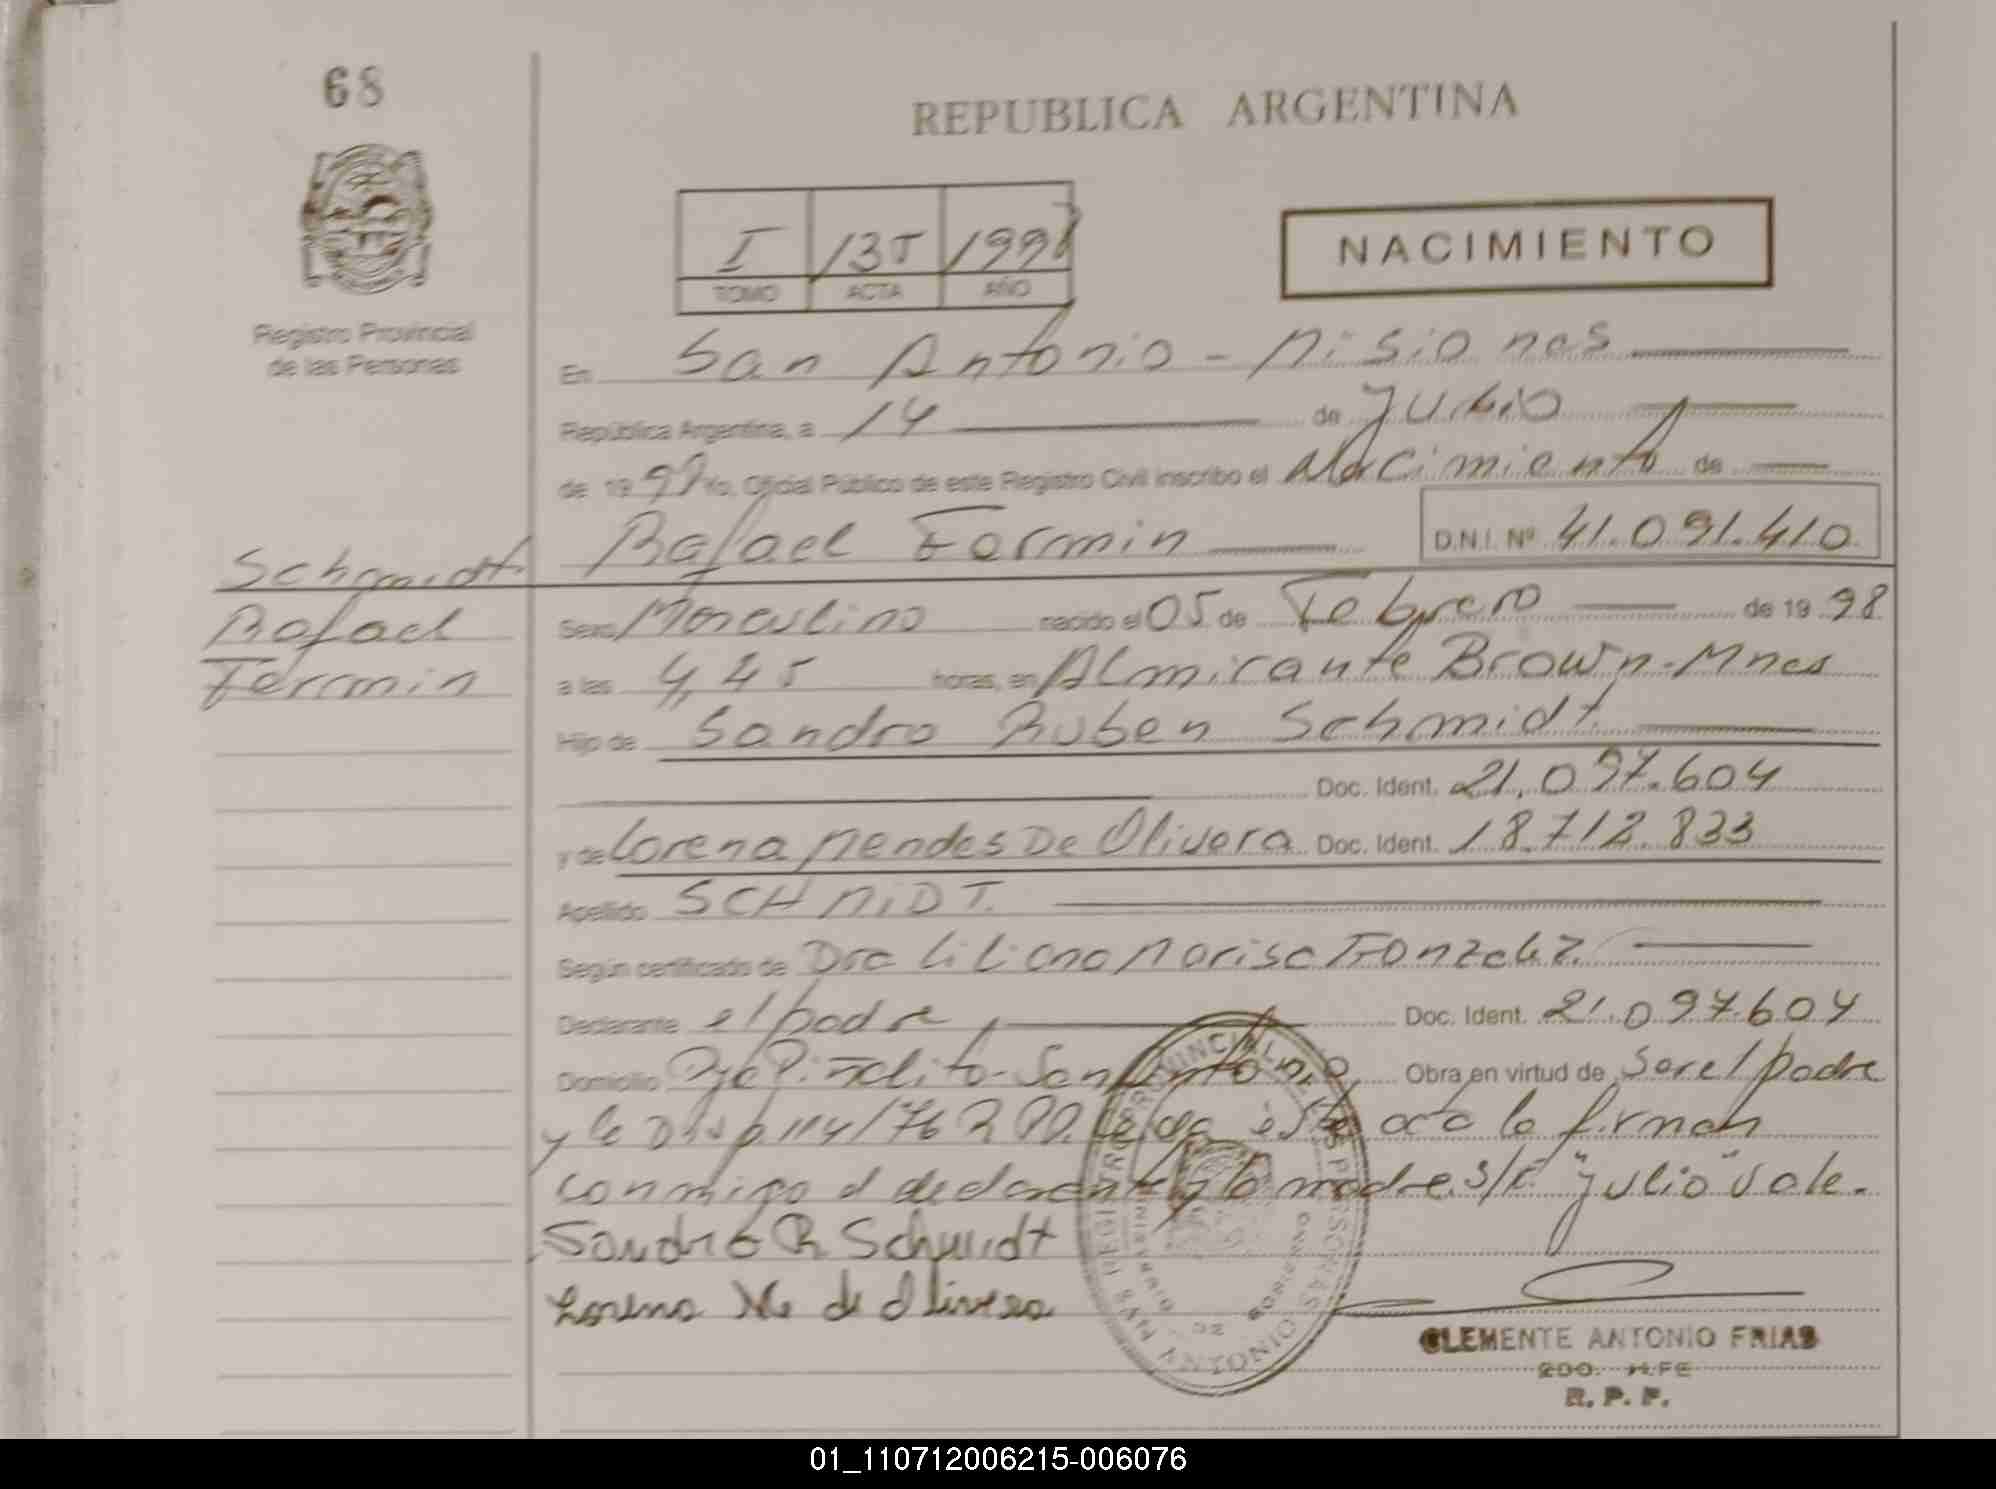 68
REPUBLICA ARGENTINA
I 135 1998
TOMO ACTA AÑO
NACIMIENTO
Registro Provincial
de las Personas
En San Antonio - Misiones
República Argentina, a 14 de Julio
de 1998 Yo, Oficial Público de este Registro Civil inscribo el Nacimiento de
Rafael Fermin D.N.I. Nº 41.091.410
Schmidt
Rafael
Fermin
Sexo Masculino nacido el 05 de Febrero de 19 98
a las 4,45 horas, en Almirante Brown-Mnes
Hijo de Sandro Ruben Schmidt
Doc. Ident. 21.097.604
y de Lorena Mendes De Olivera Doc. Ident. 18.712.833
Apellido SCHMIDT.
Según certificado de Dra Liliana Marisa Gonzalez.
Declarante el padre Doc. Ident. 21.097.604
Domicilio Pje Pinalito-San Antonio, Obra en virtud de Ser el padre
y la Disp 114/76 RPP. Leida esta acta la firman
conmigo el declarante y la madre. S/R "Julio" vale.
Sandro R Schmidt
Lorena M. de Olivera
REGISTRO PROVINCIAL DE LAS PERSONAS
MINISTERIO DE GOBIERNO
SAN ANTONIO MNS
CLEMENTE ANTONIO FRIAS
2DO. JEFE
R. P. P.
01_110712006215-006076